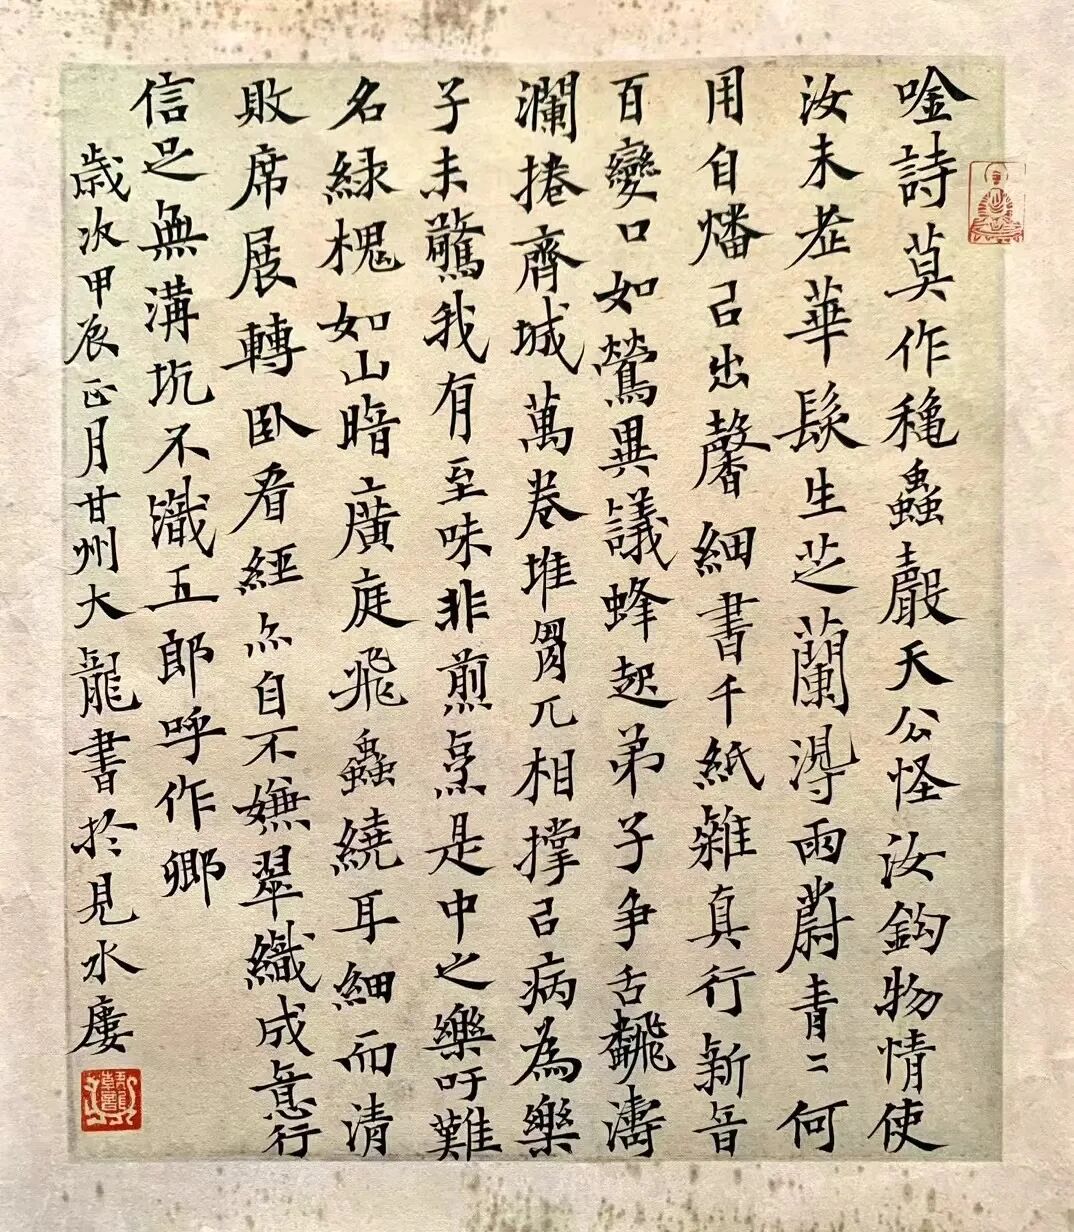 唫詩莫作穐蟲聲天公怪汝鈎物情使
汝未老華髮生芝蘭得雨蔚青々何
用自燔以出馨細書千紙雜真行新音
百變口如鶯異議蜂起弟子爭舌飜濤
瀾捲齊城萬卷堆胷兀相撑以病為樂
子未驚我有至味非煎烹是中之樂吁難
名綠槐如山暗廣庭飛蟲繞耳細而清
敗席展轉臥看經亦自不嫌翠織成意行
信足無溝坑不識五郎呼作卿
歲次甲辰正月甘州大龍書於見水廔